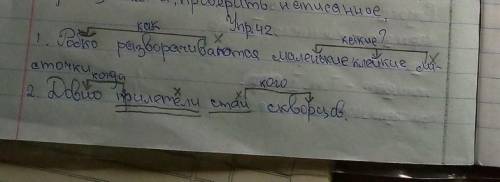 проверить написанное.
Упр. 42.
как какие?
1. Робко разворачиваются маленькие клейкие ли-
сточки. когда кого
2. Давно прилетели стаи скворцов.